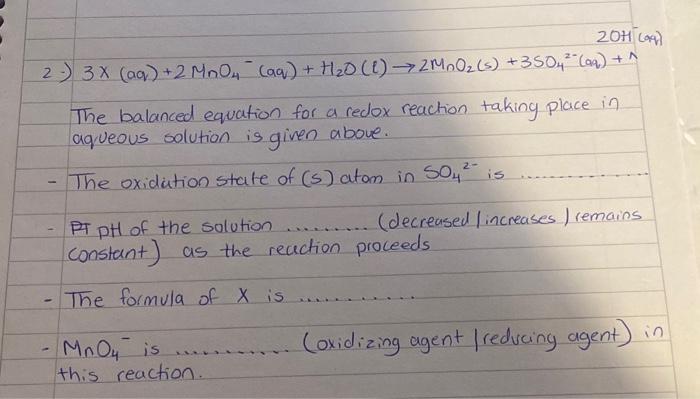 2OH⁻(aq)
2-) 3X (aq) + 2 MnO₄⁻ (aq) + H₂O (l) → 2MnO₂(s) + 3SO₄²⁻(aq) + ^
The balanced equation for a redox reaction taking place in
aqueous solution is given above.
- The oxidation state of (s) atom in SO₄²⁻ is ..............
- PT pH of the solution .......... (decreased / increases / remains
constant) as the reaction proceeds
- The formula of X is ............
- MnO₄⁻ is ............ (oxidizing agent / reducing agent) in
this reaction.